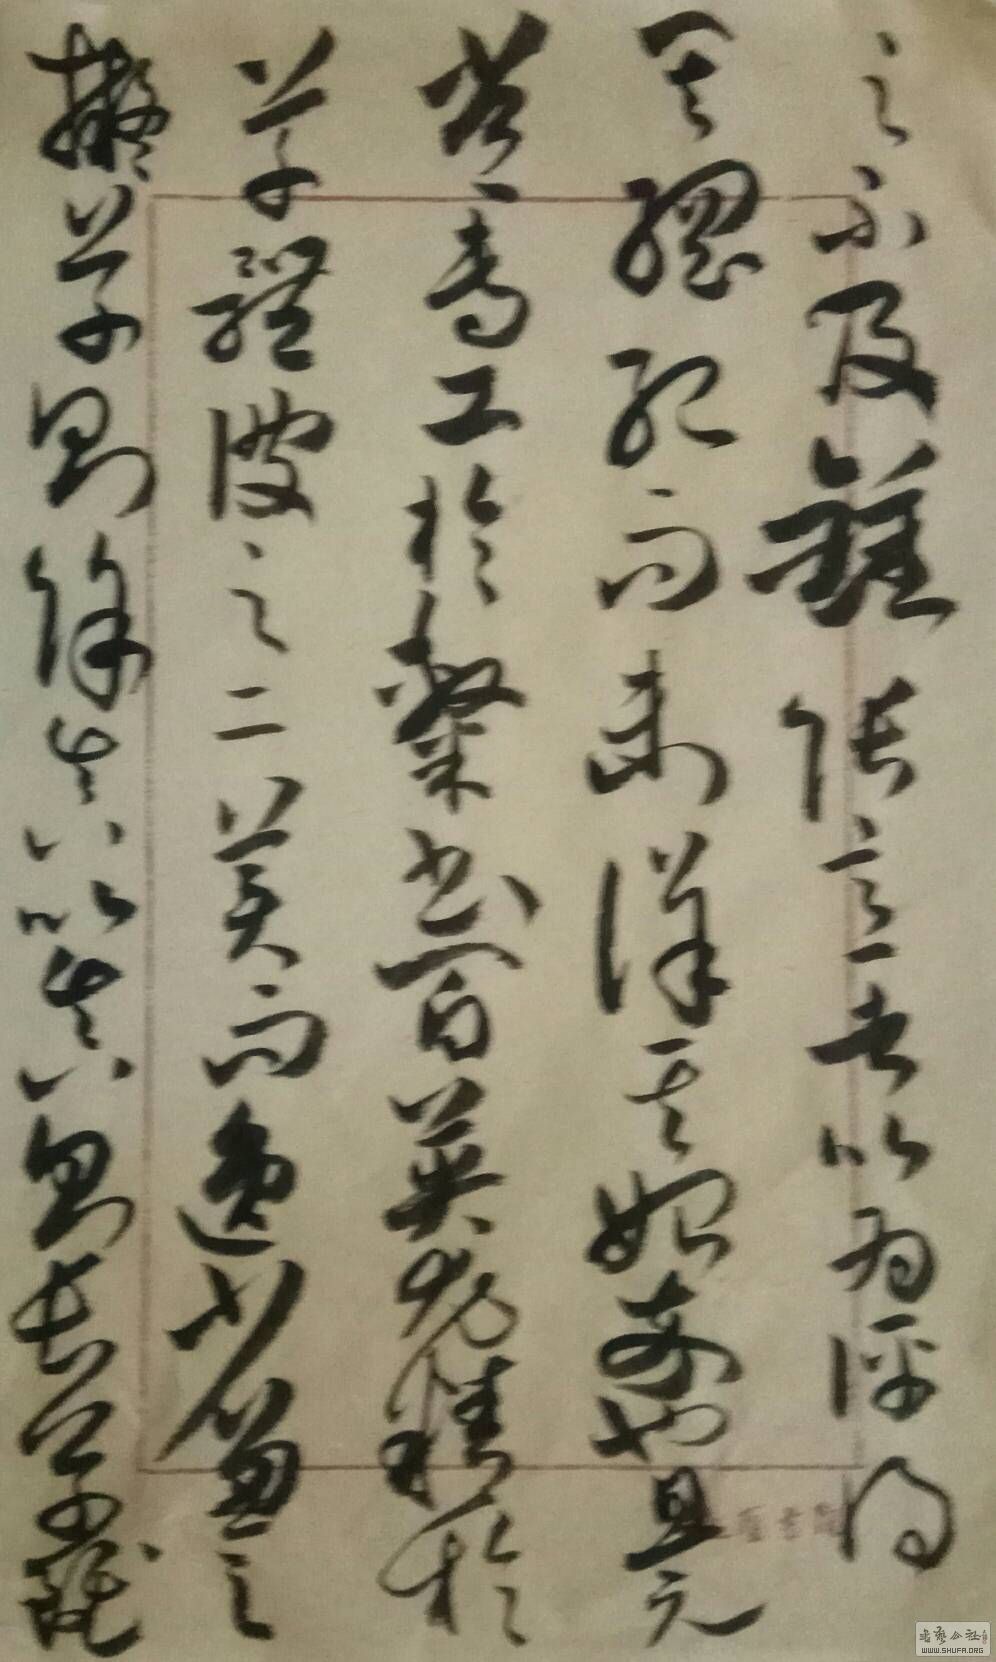 之不及鍾張言者以為評得
其綱紀而未詳其始卒也且元
常專工於隸書百英尤精於
草體彼之二美而逸少兼之
擬草則餘真比真則長草雖
書藝公社
WWW.SHUFA.ORG